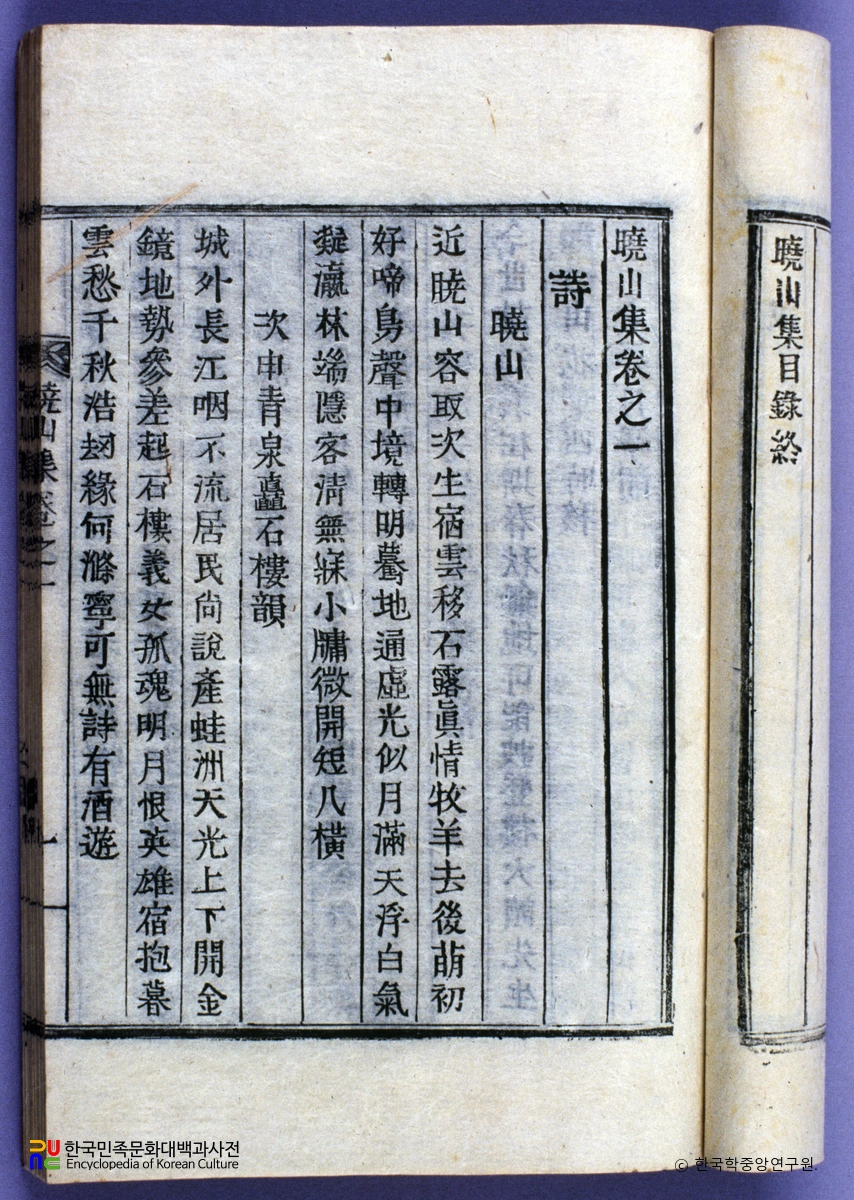 曉山集目錄終
曉山集卷之一
詩
曉山
近曉山容取次生宿雲移石露眞情牧羊去後萌初
好啼鳥聲中境轉明驀地通虛光似月滿天浮白氣
疑瀛林端隱客淸無寐小牖微開短几橫
次申青泉矗石樓韻
城外長江咽不流居民尙說產蛙洲天光上下開金
鏡地勢參差起石樓義女孤魂明月恨英雄宿抱暮
雲愁千秋浩劫緣何滌寧可無詩有酒遊
曉山集卷之一
한국민족문화대백과사전
Encyclopedia of Korean Culture
© 한국학중앙연구원